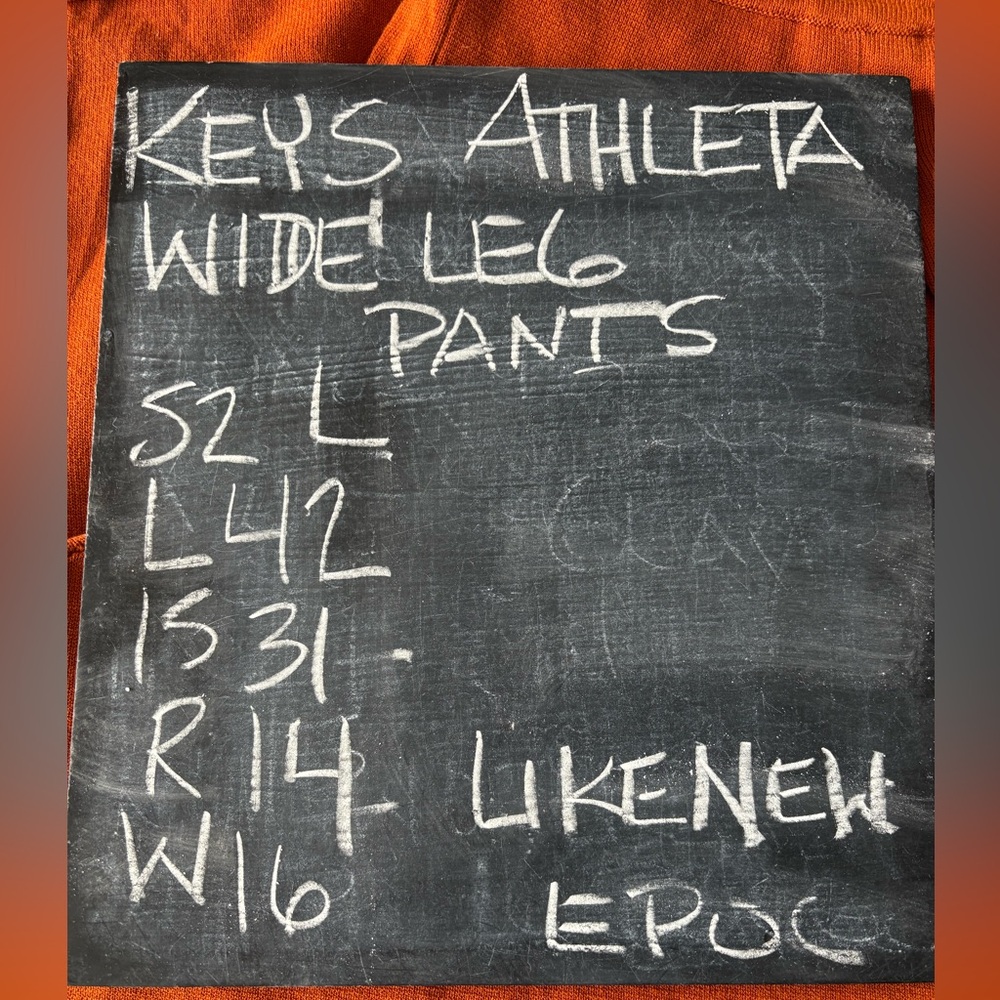 KEYS ATHLETA
WIDE LEG
PANTS
SZ L
L 42
IS 31
R 14
W 16
LIKE NEW
EPOC